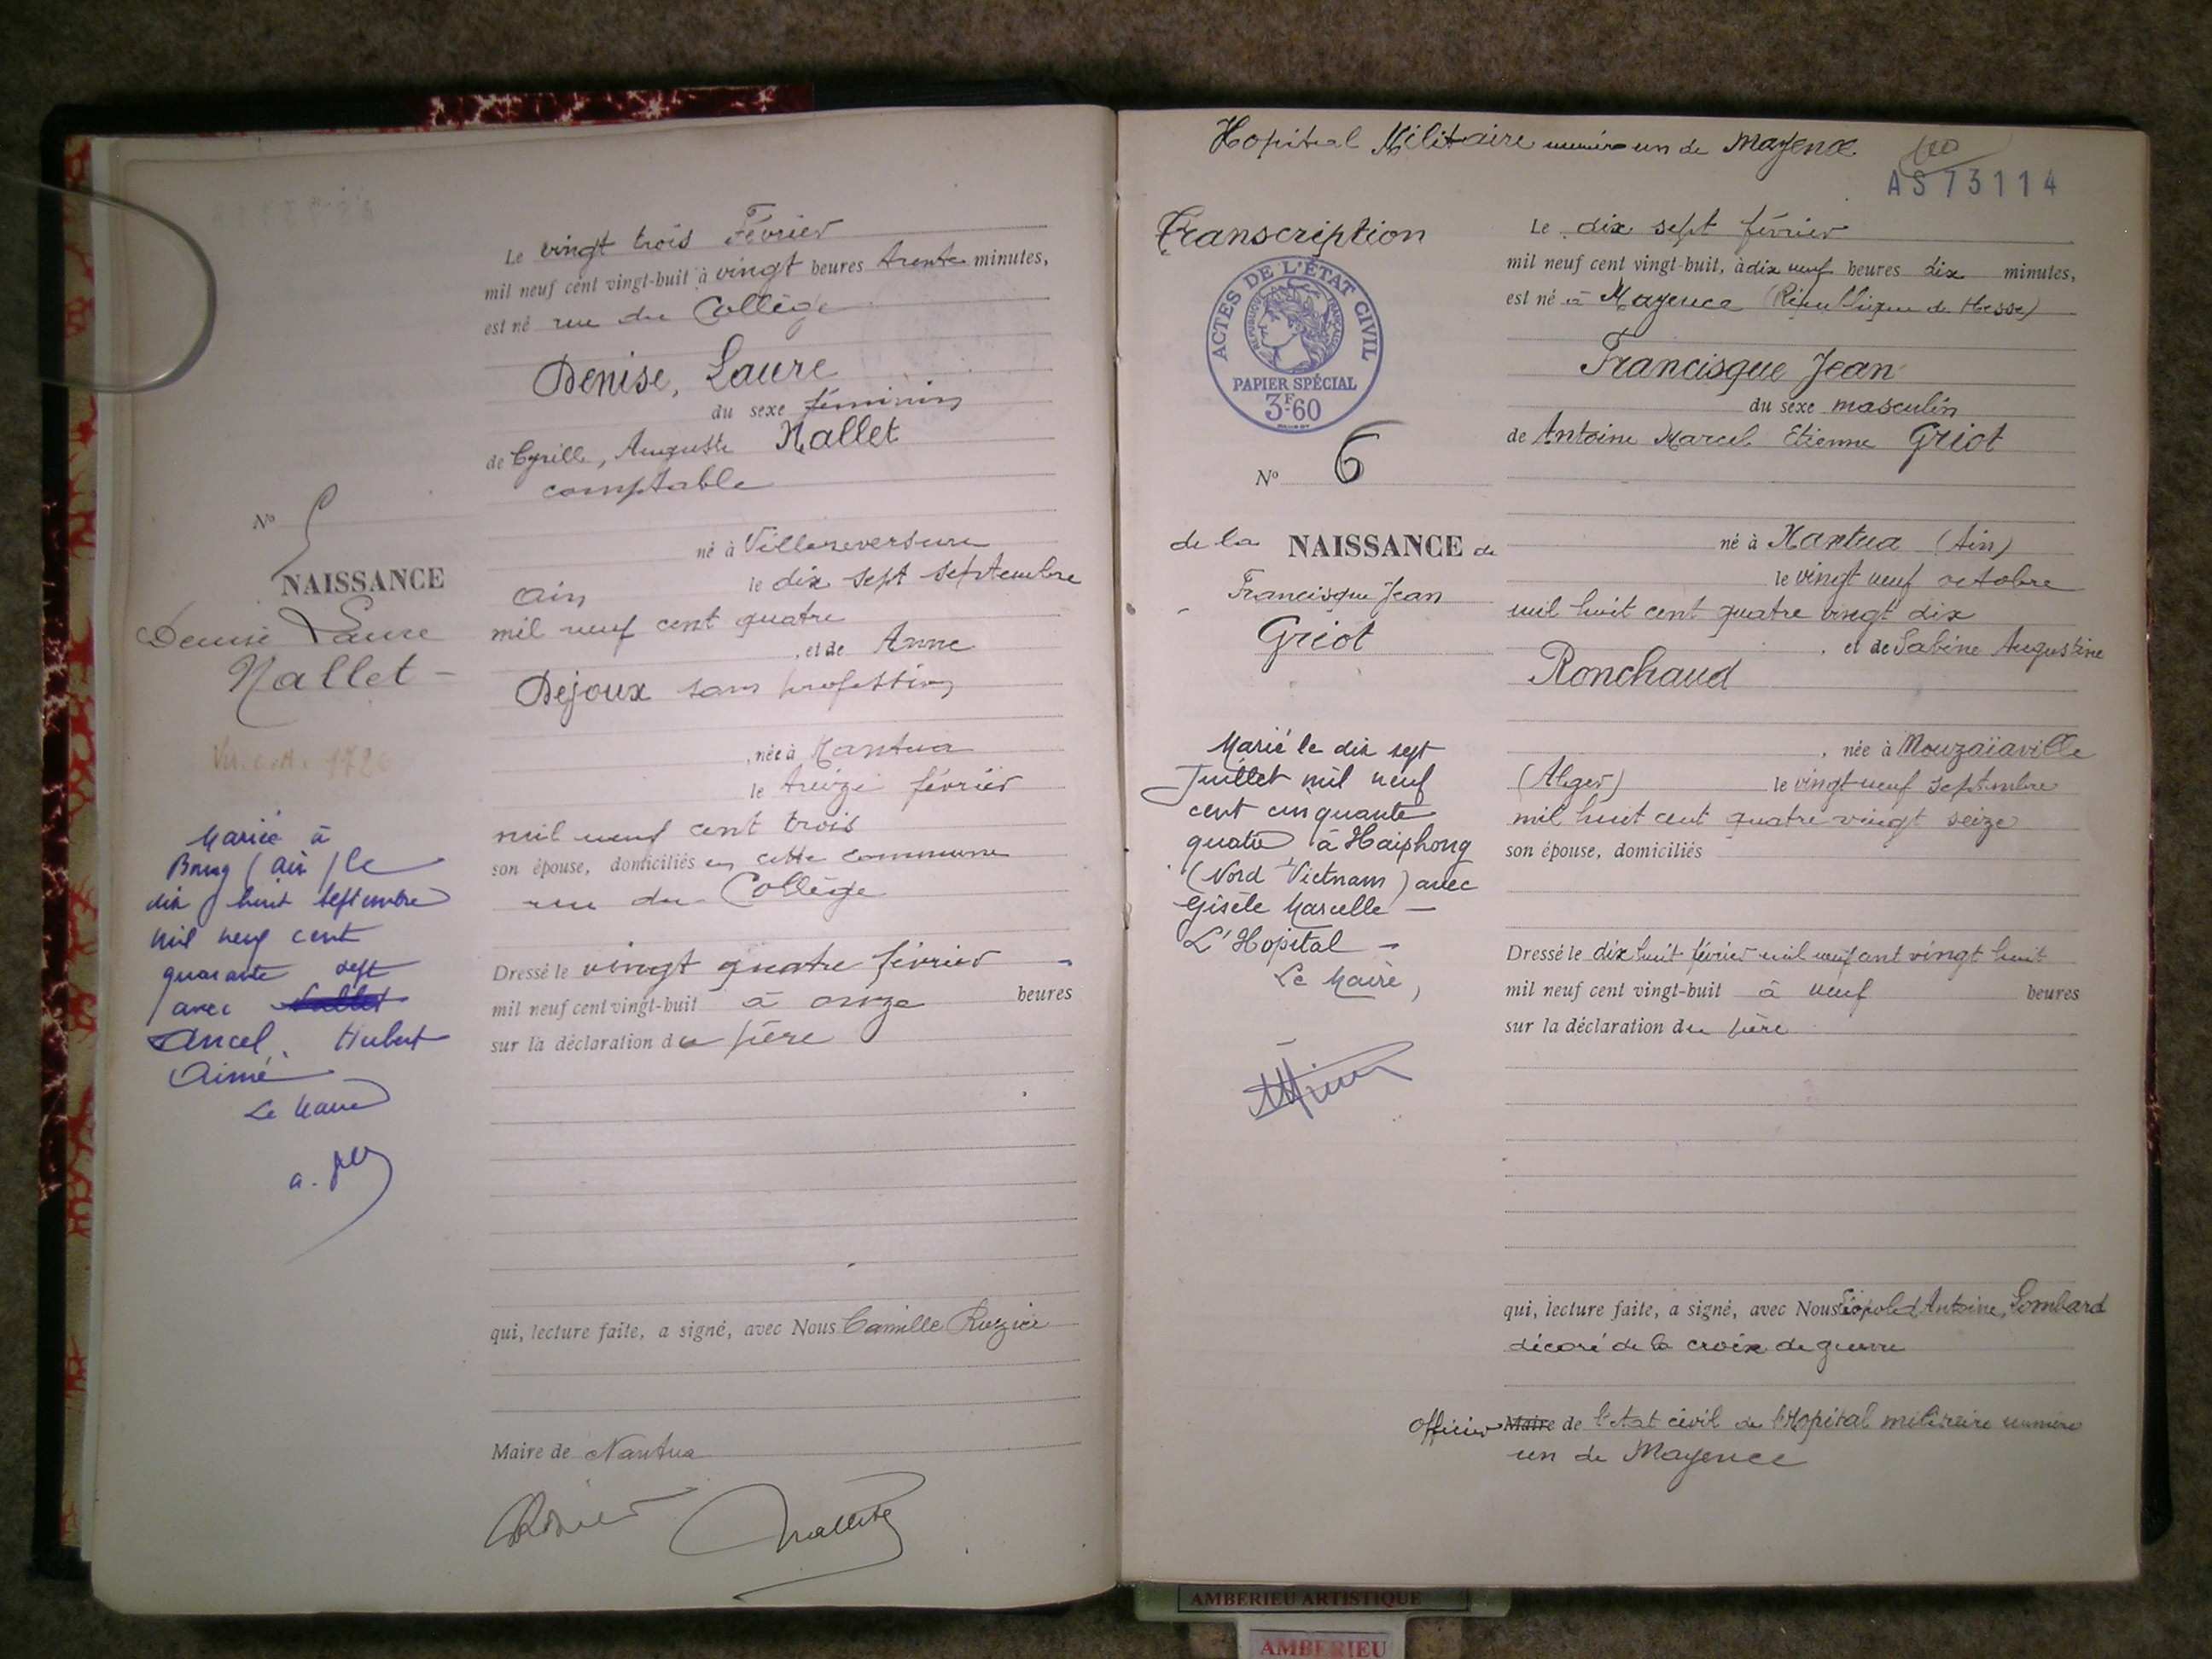 Le vingt trois Février
mil neuf cent vingt-huit à vingt heures trente minutes,
est né rue du Collège
Denise, Laure
du sexe féminin
de Cyrille, Auguste Nallet
comptable
né à Villereversure
Ain le dix sept septembre
mil neuf cent quatre
, et de Anne
Dejoux sans profession
, née à Nantua
le treize février
mil neuf cent trois
son épouse, domiciliés en cette commune
rue du Collège
Dressé le vingt quatre février -
mil neuf cent vingt-huit à onze heures
sur la déclaration du père
qui, lecture faite, a signé, avec Nous Camille
Maire de Nantua
No 5
NAISSANCE
Denise Laure
Nallet -
Mariée à
Bourg (Ain) le
dix huit septembre
mil neuf cent
quarante sept
avec Nallet
Ancel Hubert
Aimé
Le Maire
Hopital Militaire numéro un de Mayence
110
AS73114
Transcription
ACTES DE L'ÉTAT CIVIL
PAPIER SPÉCIAL
3F.60
No 6
de la NAISSANCE de
Francisque Jean
Griot
Marié le dix sept
Juillet mil neuf
cent cinquante
quatre à Haiphong
(Nord Vietnam) avec
Gisèle Marcelle -
L'Hopital -
Le Maire,
Le dix sept février
mil neuf cent vingt-huit, à dix neuf heures dix minutes,
est né à Mayence (République de Hesse)
Francisque Jean
du sexe masculin
de Antoine Marcel Etienne Griot
né à Nantua (Ain)
le vingt neuf octobre
mil huit cent quatre vingt dix
, et de Sabine Augustine
Ronchaud
, née à Mouzaïaville
(Alger) le vingt neuf septembre
mil huit cent quatre vingt seize
son épouse, domiciliés
Dressé le dix huit février mil neuf cent vingt huit
mil neuf cent vingt-huit à neuf heures
sur la déclaration du père
qui, lecture faite, a signé, avec Nous Léopold Antoine, Lombard
décoré de la croix de guerre
Officier Maire de l'état civil de l'Hopital militaire numéro
un de Mayence
AMBERIEU ARTISTIQUE
AMBERIEU